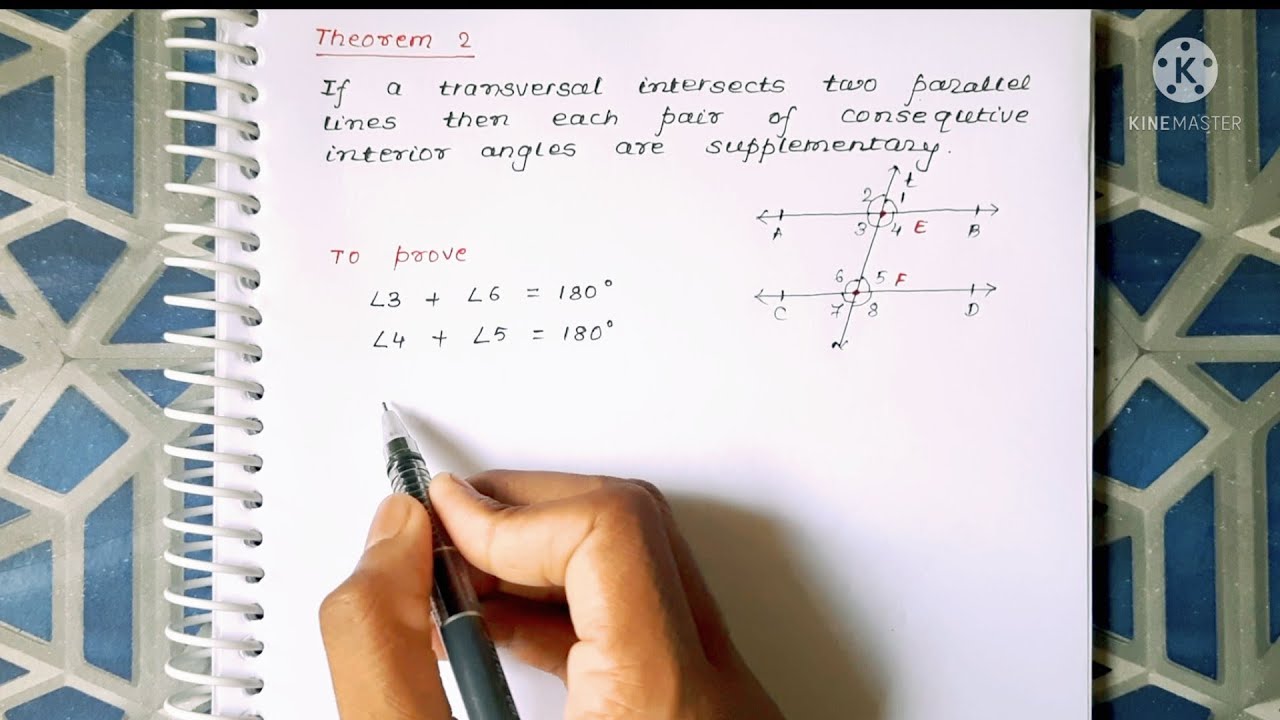 Theorem 2
If a transversal intersects two parallel
lines then each pair of consequtive
interior angles are supplementary.
To prove
∠3 + ∠6 = 180°
∠4 + ∠5 = 180°
t
2 1
A 3 4 E B
6 5 F
C 7 8 D
K
KINEMASTER